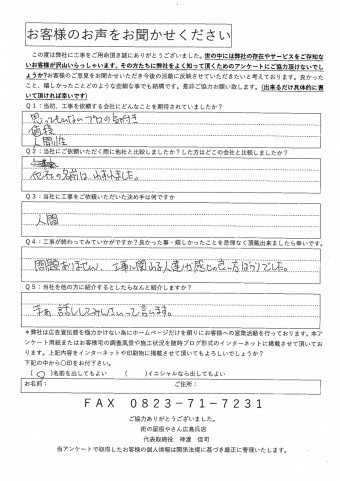 お客様のお声をお聞かせください
この度は弊社に工事をご用命頂き誠にありがとうございました。世の中には弊社の存在やサービスをご存知ないお客様が沢山いらっしゃいます。その方たちに弊社をよく知って頂くためのアンケートにご協力頂けないでしょうか?お客様のご意見をお聞かせいただき今後の活動に反映させていただきたいと考えております。良かったこと、嬉しかったことどのような些細な事でも結構です。是非ご協力お願い致します。(出来るだけ具体的に書いて頂ければ幸いです)
Q1:当初、工事を依頼する会社にどんなことを期待されていましたか?
思ってもみないプロの気付き
価格
人間性
Q2:当社にご依頼いただく際に他社と比較しましたか?した方はどこの会社と比較しましたか?
他社の名前は、出ましました。
Q3:当社に工事をご依頼いただいた決め手は何ですか
人間
Q4:工事が終わってみていかがですか?良かった事・嬉しかったことを忌憚なく頂戴出来ましたら幸いです。
問題ありません、工事に関わる人達が感じの良い方ばかりでした。
Q5:当社を他の方に紹介するとしたらなんと紹介しますか?
まぁ 話ししてみしないって言います。
*弊社は広告宣伝費を極力かけない為にホームページだけを頼りにお客様への営業活動を行っております。本アンケート用紙またはお客様宅の調査風景や施工状況を随時ブログ形式のインターネットに掲載させて頂いております。上記内容をインターネットや印刷物に掲載させて頂いてもよろしいでしょうか?
下記の中から〇印をお付下さい。
(〇)名前を出してもよい ( )イニシャルなら出してもよい
お名前: ご住所:
FAX 0823-71-7231
ご協力ありがとうございました。
街の屋根やさん広島呉店
代表取締役 神渡 信司
当アンケートで取得したお客様の個人情報は関係法規に基づき厳正に管理いたします。